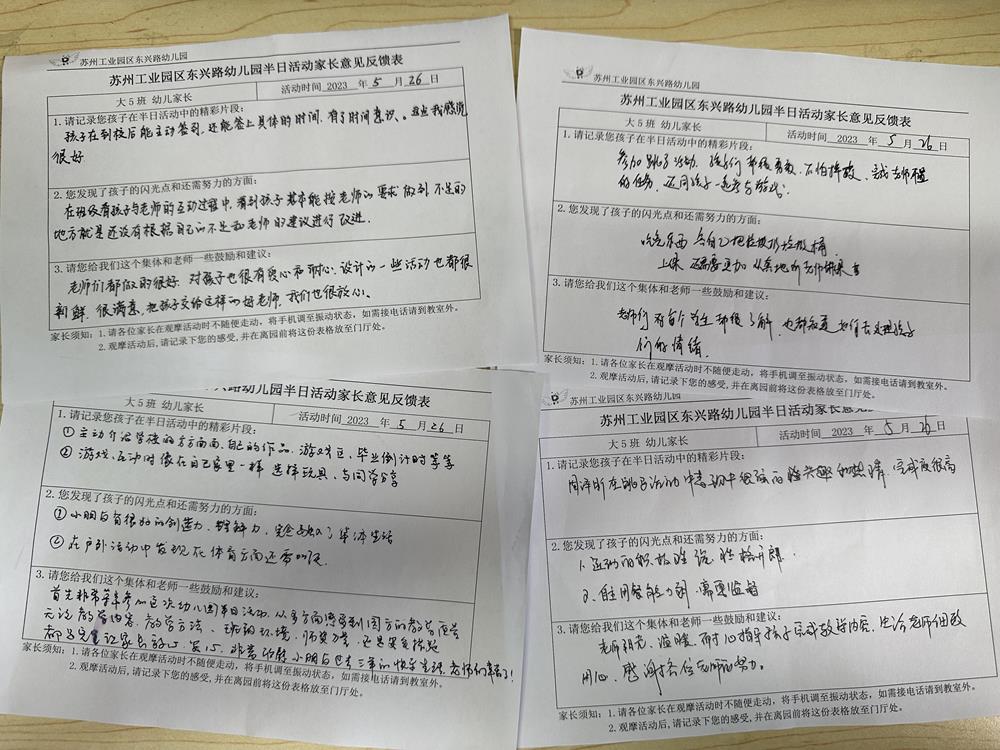 苏州工业园区东兴路幼儿园
苏州工业园区东兴路幼儿园半日活动家长意见反馈表
大5班 幼儿家长 活动时间 2023 年 5 月 26 日
1.请记录您孩子在半日活动中的精彩片段:
孩子在到校后能主动签到,还能签上具体的时间,有了时间意识。这点我感觉
很好
2.您发现了孩子的闪光点和还需努力的方面:
在班级看孩子与老师的互动过程中,看到孩子基本能按老师的要求做到,不足的
地方就是还没有根据自己的不足和老师的建议进行改进.
3.请您给我们这个集体和老师一些鼓励和建议:
老师们都做的很好.对孩子也很有爱心和耐心.设计的一些活动也都很
新鲜.很满意.把孩子交给这样的好老师,我们也很放心。
家长须知:1.请各位家长在观摩活动时不随便走动,将手机调至振动状态,如需接电话请到教室外。
2.观摩活动后,请记录下您的感受,并在离园前将这份表格放至门厅处。
苏州工业园区东兴路幼儿园
苏州工业园区东兴路幼儿园半日活动家长意见反馈表
大5班 幼儿家长 活动时间 2023 年 5 月 26 日
1.请记录您孩子在半日活动中的精彩片段:
参加跳弓活动.孩子们都很勇敢,不怕摔跤,完成老师布置
的任务,还同孩子一起参与游戏;
2.您发现了孩子的闪光点和还需努力的方面:
吃完东西会自己把垃圾扔垃圾桶
上课 还需要更加认真地听老师讲课
3.请您给我们这个集体和老师一些鼓励和建议:
老师们对每个学生都很了解,也都知道如何去处理孩子
们的情绪.
家长须知:1.请各位家长在观摩活动时不随便走动,将手机调至振动状态,如需接电话请到教室外。
2.观摩活动后,请记录下您的感受,并在离园前将这份表格放至门厅处。
兴路幼儿园半日活动家长意见反馈表
大5班 幼儿家长 活动时间 2023 年 5 月 26 日
1.请记录您孩子在半日活动中的精彩片段:
① 主动介绍班级的方方面面,自己的作品,游戏区,毕业倒计时等等
② 游戏、互动时像在自己家里一样 选择玩具,与同学分享
2.您发现了孩子的闪光点和还需努力的方面:
① 小朋友有很好的创造力、理解力,完全融入了集体生活
② 在户外活动中发现在体育方面还需加强.
3.请您给我们这个集体和老师一些鼓励和建议:
首先非常荣幸参加这次幼儿园半日活动,从多方面感受到园方的教育
无论教学内容、教学方法、班级环境、师资力量,还是
都可完量让家长放心、安心,非常 小朋友 三年的快乐生活,老师们辛苦了!
家长须知:1.请各位家长在观摩活动时不随便走动,将手机调至振动状态,如需接电话请到教室外。
2.观摩活动后,请记录下您的感受,并在离园前将这份表格放至门厅处。
苏州工业园区东兴路幼儿园
苏州工业园区东兴路幼儿园半日活动家长意见反馈
大5班 幼儿家长 活动时间 2023 年 5 月 26 日
1.请记录您孩子在半日活动中的精彩片段:
在跳弓活动中表现出很强的 兴趣和热情,完成度很高
2.您发现了孩子的闪光点和还需努力的方面:
1、运动的积极性高,性格开朗.
2、自主用餐能力弱,需要监督
3.请您给我们这个集体和老师一些鼓励和建议:
老师阳光、温暖,耐心指导孩子完成教学内容,生活老师细致
用心,感谢各位老师的努力。
家长须知:1.请各位家长在观摩活动时不随便走动,将手机调至振动状态,如需接电话请到教室外。
2.观摩活动后,请记录下您的感受,并在离园前将这份表格放至门厅处。